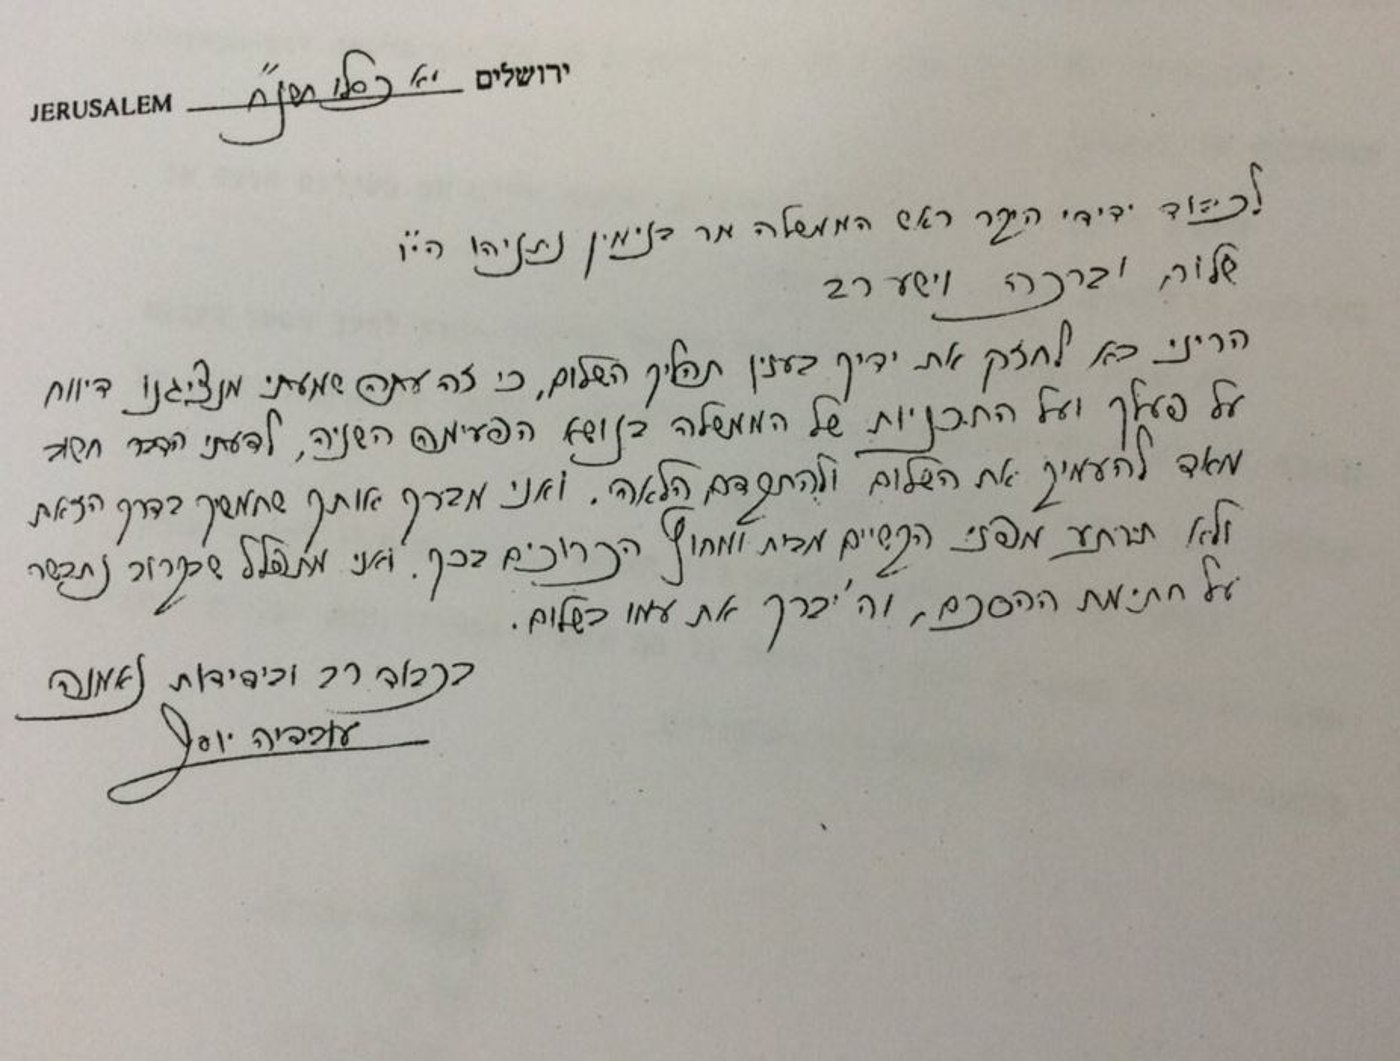 JERUSALEM יא כסלו תשנ״ח ירושלים
לכבוד ידידי היקר ראש הממשלה מר בנימין נתניהו הי״ו
שלום וברכה וישע רב
הריני בא לחזק את ידיך בענין תהליך השלום, כי זה עתה שמעתי מנציגנו דיווח
על פעלך ועל התכניות של הממשלה בנושא הפעימה השניה, לדעתי הדבר חשוב
מאד להעמיק את השלום ולהתקדם הלאה. ואני מברך אותך שתמשיך בדרך הזאת
ולא תירתע מפני הקשיים מבית ומחוץ הכרוכים בכך. ואני מתפלל שבקרוב נתבשר
על חתימת ההסכם, וה' יברך את עמו בשלום.
בכבוד רב ובידידות נאמנה
עובדיה יוסף